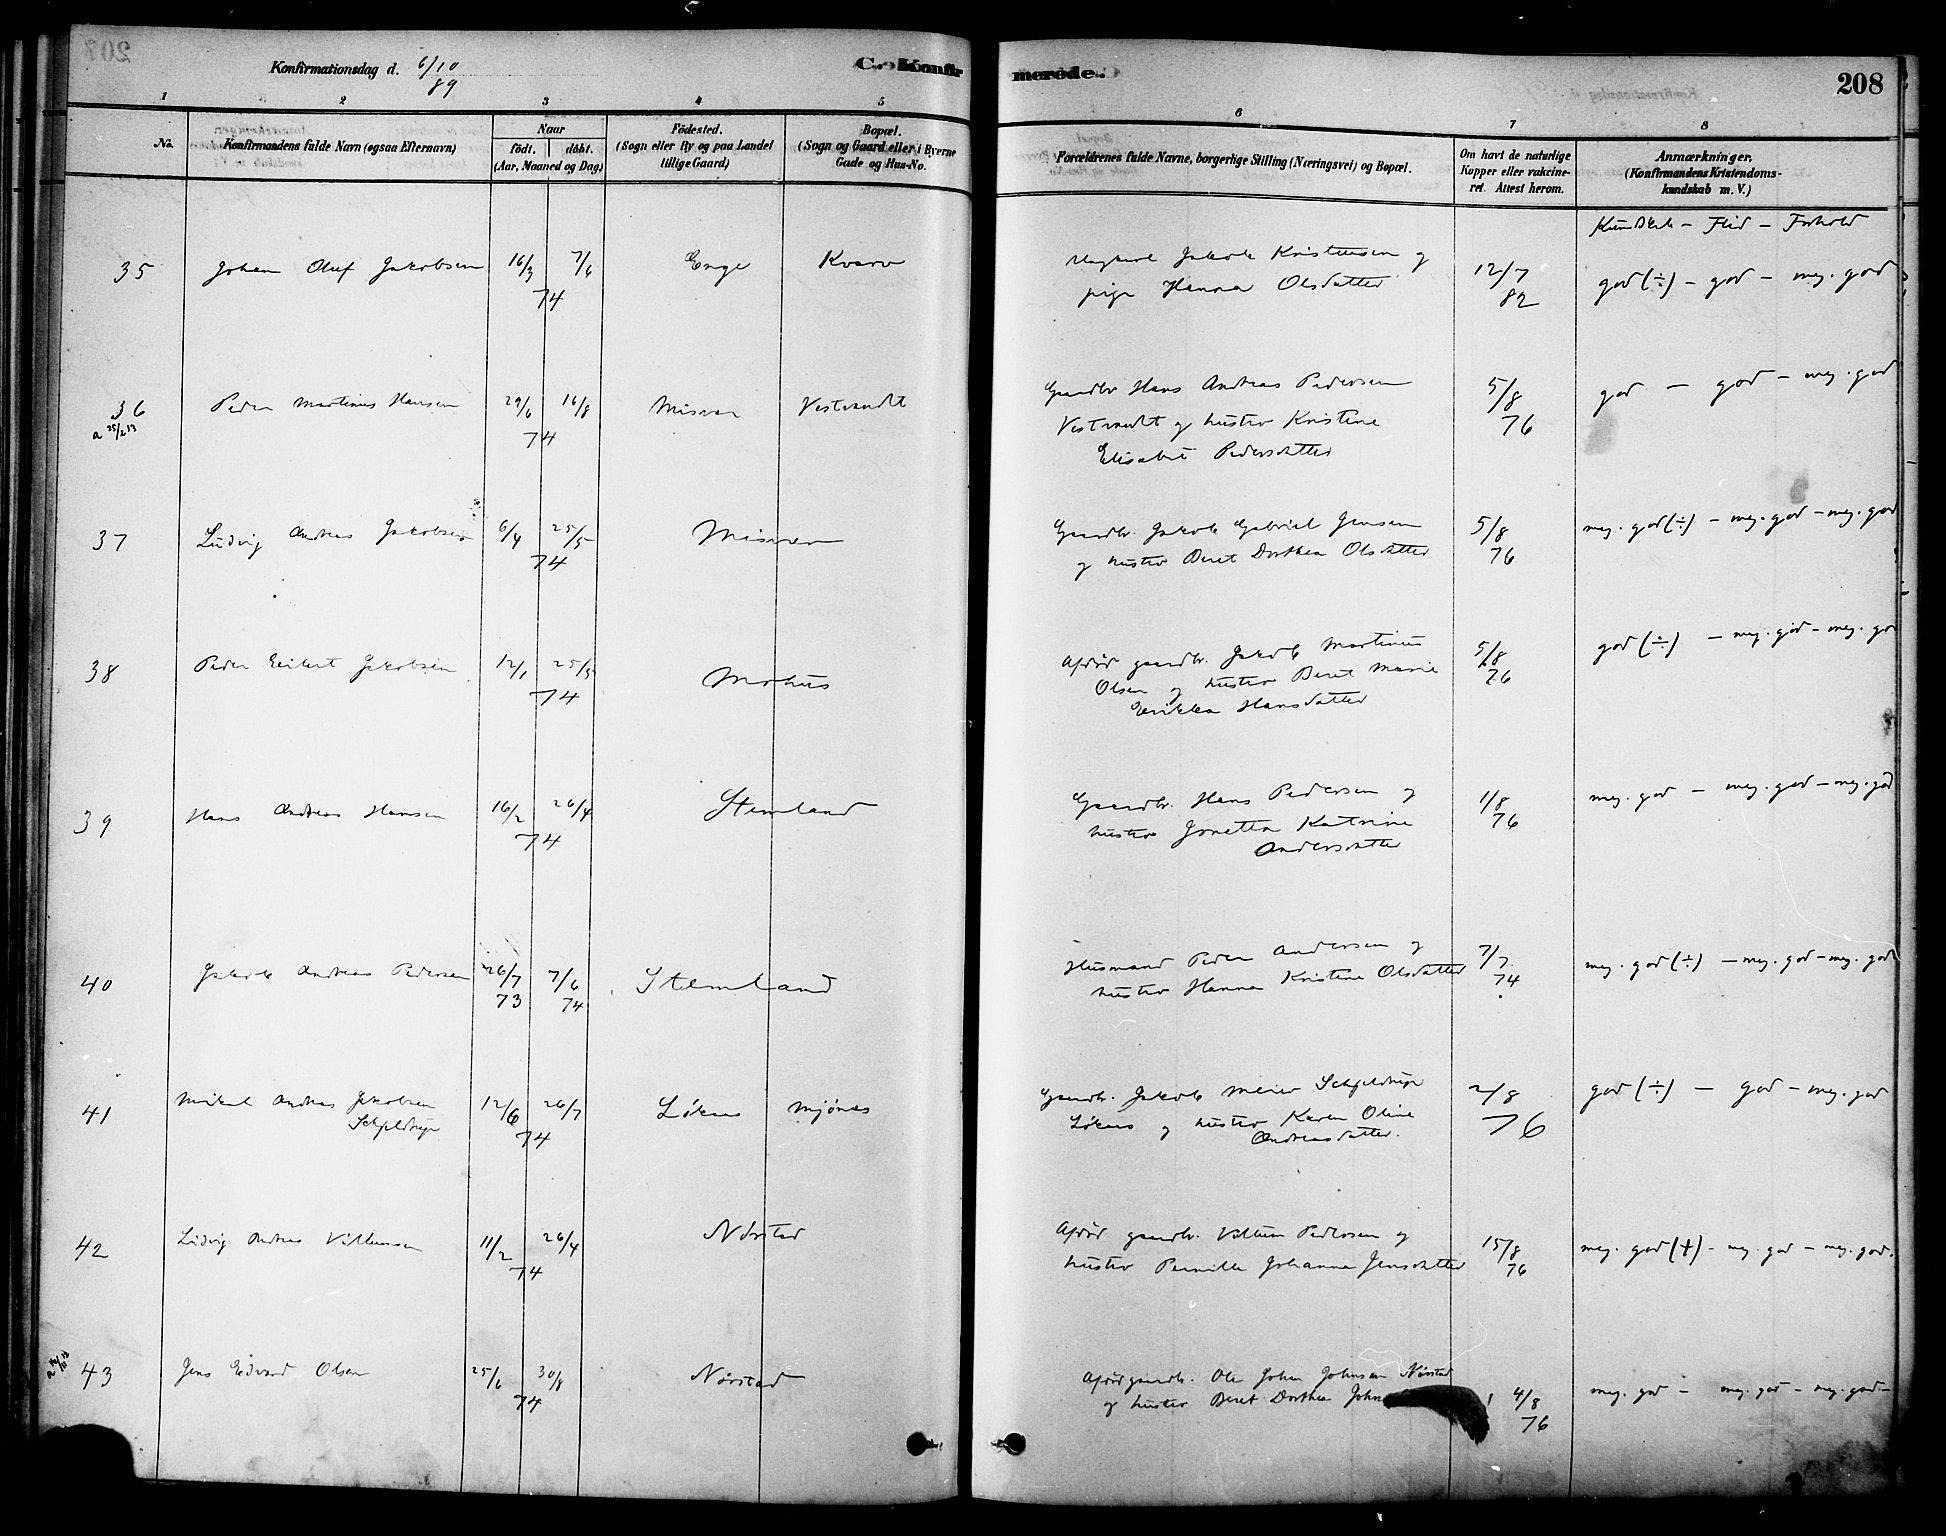 Konfirmationsdag d. 6/10 89
C. Konfirmerede.
208
1 2 3 4 5 6 7 8
No.
Konfirmandens fulde Navn (ogsaa Efternavn)
Naar
födt. döbt.
(Aar, Maaned og Dag)
Födested.
(Sogn eller By og paa Landet
tillige Gaard)
Bopæl.
(Sogn og Gaard eller i Byerne
Gade og Hus-No.
Forældrenes fulde Navne, borgerlige Stilling (Næringsvei) og Bopæl.
Om havt de naturlige
Kopper eller vakcine-
ret. Attest herom.
Anmærkninger.
(Konfirmandens Kristendoms-
kundskab m. V.)
Kundskab - Flid - Forhold
35 Johan Oluf Jakobsen 16/3 7/6 74 Enge Kvarv
Ungkarl Jakob Kristensen og
pige Hanna Olsdatter
12/7 82 god (÷) - god - meg. god
36 Peder Martinus Hansen 29/6 16/8 74 Misvær Vestvandt
Gaardbr Hans Andreas Pedersen
Vestvandt og hustro Kristine
Elisabet Pedersdatter
5/8 76 god - god - meg. god
37 Ludvig Andreas Jakobsen 6/4 25/5 74 Misvær
Gaardbr. Jakob Gabriel Jensen
og hustro Beret Dorthea Olsdatter
5/8 76 meg. god (÷) - meg. god - meg. god
38 Peder Jakobsen 12/1 25/5 74 Mohus
Afdød gaardbr. Jakob Martinus
Olsen og hustro Beret Marie
Erikka Hansdatter
5/8 76 god (÷) - meg. god - meg. go
39 Hans Andreas Hansen 16/2 26/4 74 Stemland
Gaardbr. Hans Pedersen og
hustro Jonetta Katrine
Andersdatter
1/8 76 meg. god - meg. god - meg. god
40 Jakob Andreas Pedersen 26/7 73 7/6 74 Stemland
Husmand Peder Andersen og
hustro Hanna Kristine Olsdatter
7/7 74 meg. god (÷) - meg. god - meg. god
41 Mikal Andreas Jakobsen
Schjeldrup
12/6 26/7 74 Løkaas Mjönes
Gaardbr. Jakob Meier Schjeldrup
Løkaas og hustro Karen Oline
Andreasdatter.
2/8 76 god (÷) - god - meg. god
42 Ludvig Andreas Villumsen 11/2 26/4 74 Nørstad
Afdød gaardbr. Villum Pedersen og
hustro Pernille Johanna Jensdatter
15/8 76 meg. god (+) - meg. god - meg. god.
43 Jens Edvard Olsen 25/6 30/8 74 Nørstad
Afdød gaardbr. Ole Johan Johnsen Nørstad
og hustro Beret Dorthea John
4/8 76 meg. god - meg. god - meg. god -